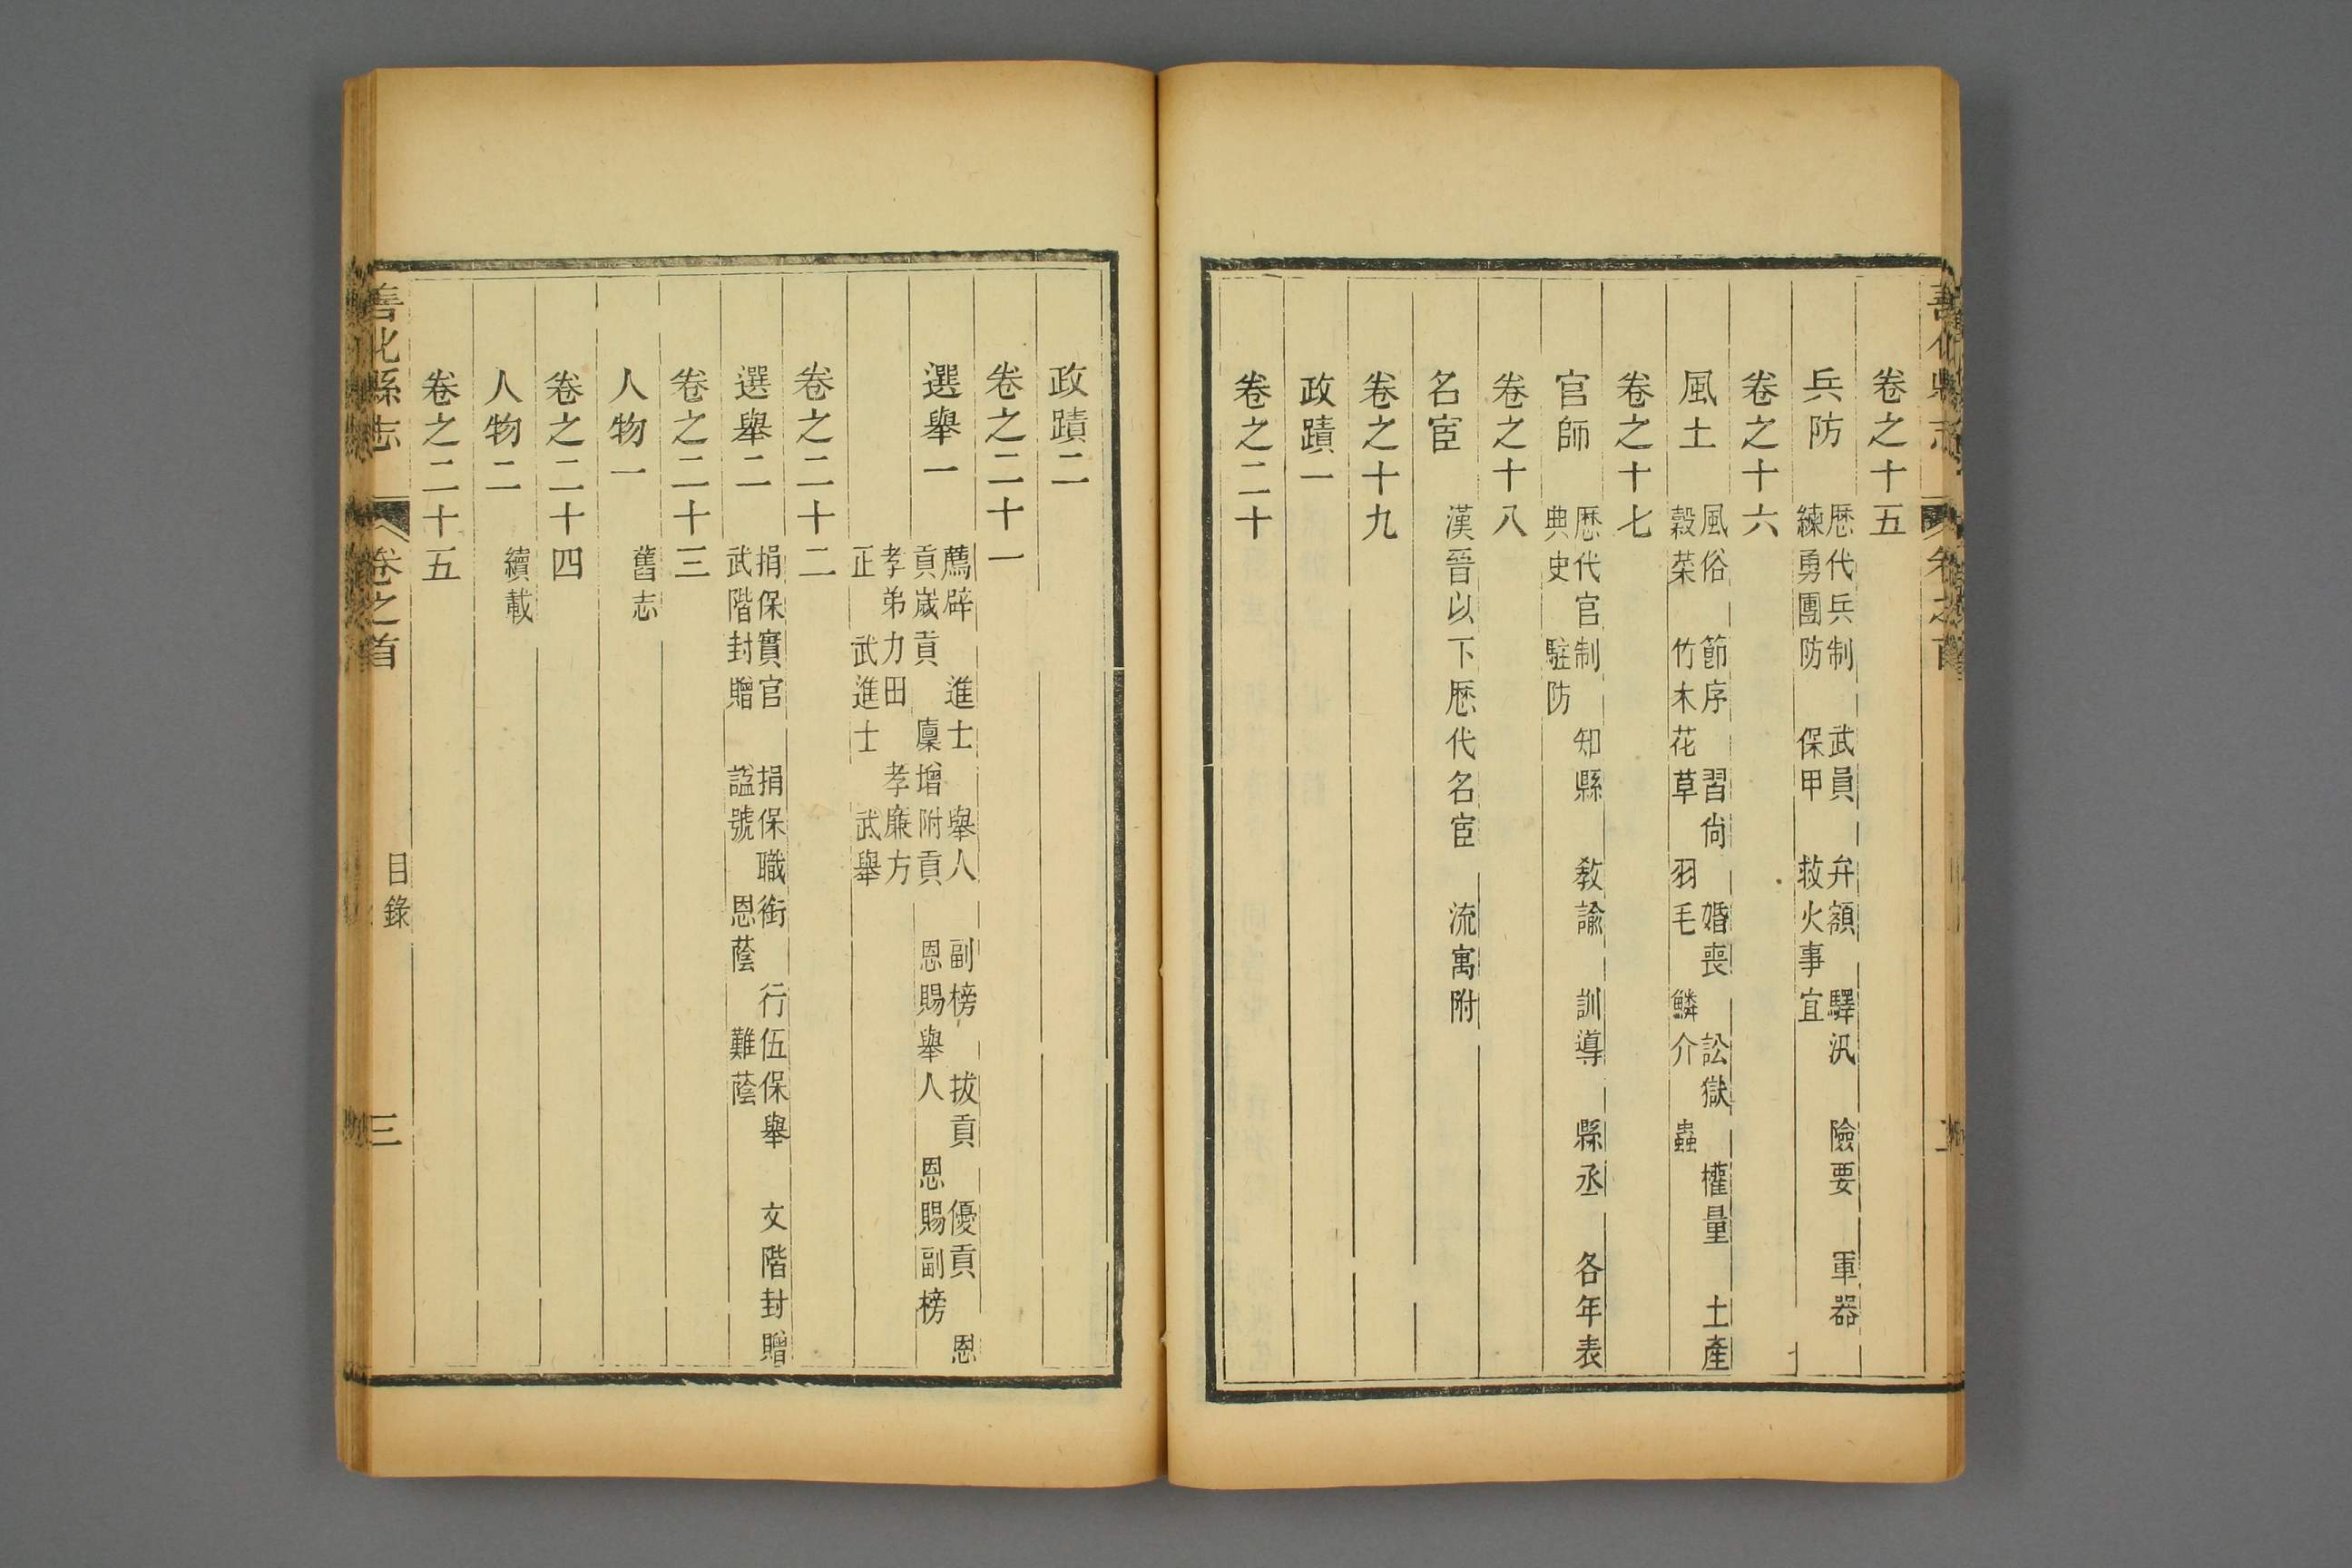 卷之十五
兵防
歷代兵制 武員 弁額 驛汛 險要 軍器
練勇團防 保甲 救火事宜
卷之十六
風土
風俗 節序 習尙 婚喪 訟獄 權量 土產
穀菜 竹木花草 羽毛 鱗介 蟲
卷之十七
官師
歷代官制 知縣 敎諭 訓導 縣丞 各年表
典史 駐防
卷之十八
名宦
漢晉以下歷代名宦 流寓附
卷之十九
政蹟一
卷之二十
政蹟二
卷之二十一
選舉一
薦辟 進士 舉人 副榜 拔貢 優貢 恩
貢嵗貢 廩增附貢 恩賜舉人 恩賜副榜
孝弟力田 孝廉方
正 武進士 武舉
卷之二十二
選舉二
捐保實官 捐保職銜 行伍保舉 文階封贈
武階封贈 諡號 恩蔭 難蔭
卷之二十三
人物一
舊志
卷之二十四
人物二
續載
卷之二十五
善化縣志 卷之首 目錄 三